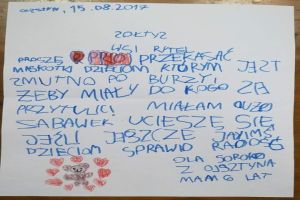 15.08.2017
SOŁTYS
WSI RYTEL
PROSZĘ O PRZEKAZAĆ
MASKOTKI DZIECIOM KTÓRYM JEST
SMUTNO PO BURZY!
ŻEBY MIAŁY DO KOGO
PRZYTULIĆ! MIAŁAM DUŻO
ZABAWEK UCIESZĘ SIĘ
JEŚLI JESZCZE JAKIMŚ
DZIECIOM SPRAWIĘ RADOŚĆ
OLA SOROKO
Z OLSZTYNA
MAM 6 LAT